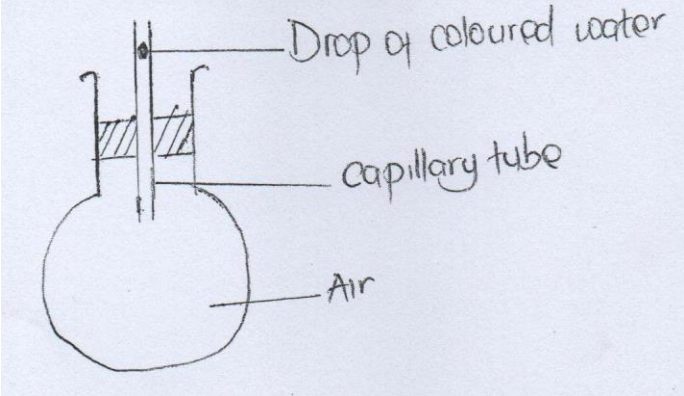 Drop of coloured water
Capillary tube
Air